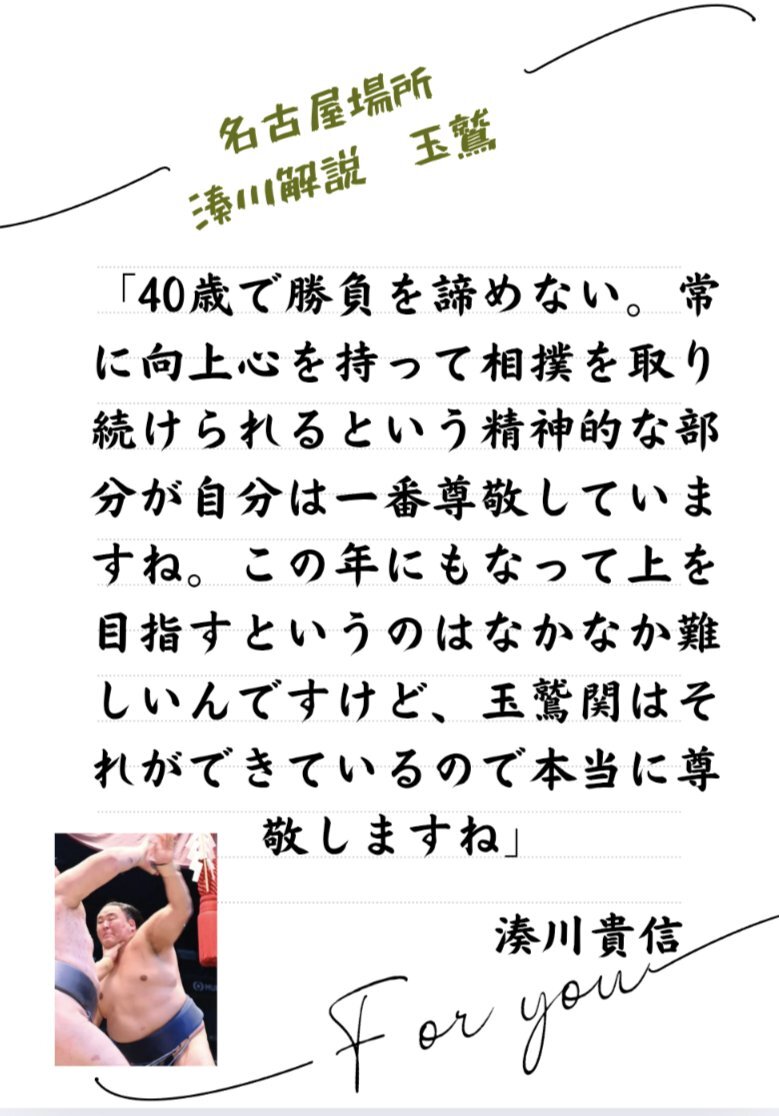 名古屋場所
湊川解説　玉鷲
「40歳で勝負を諦めない。常
に向上心を持って相撲を取り
続けられるという精神的な部
分が自分は一番尊敬していま
すね。この年にもなって上を
目指すというのはなかなか難
しいんですけど、玉鷲関はそ
れができているので本当に尊
敬しますね」
湊川貴信
For you